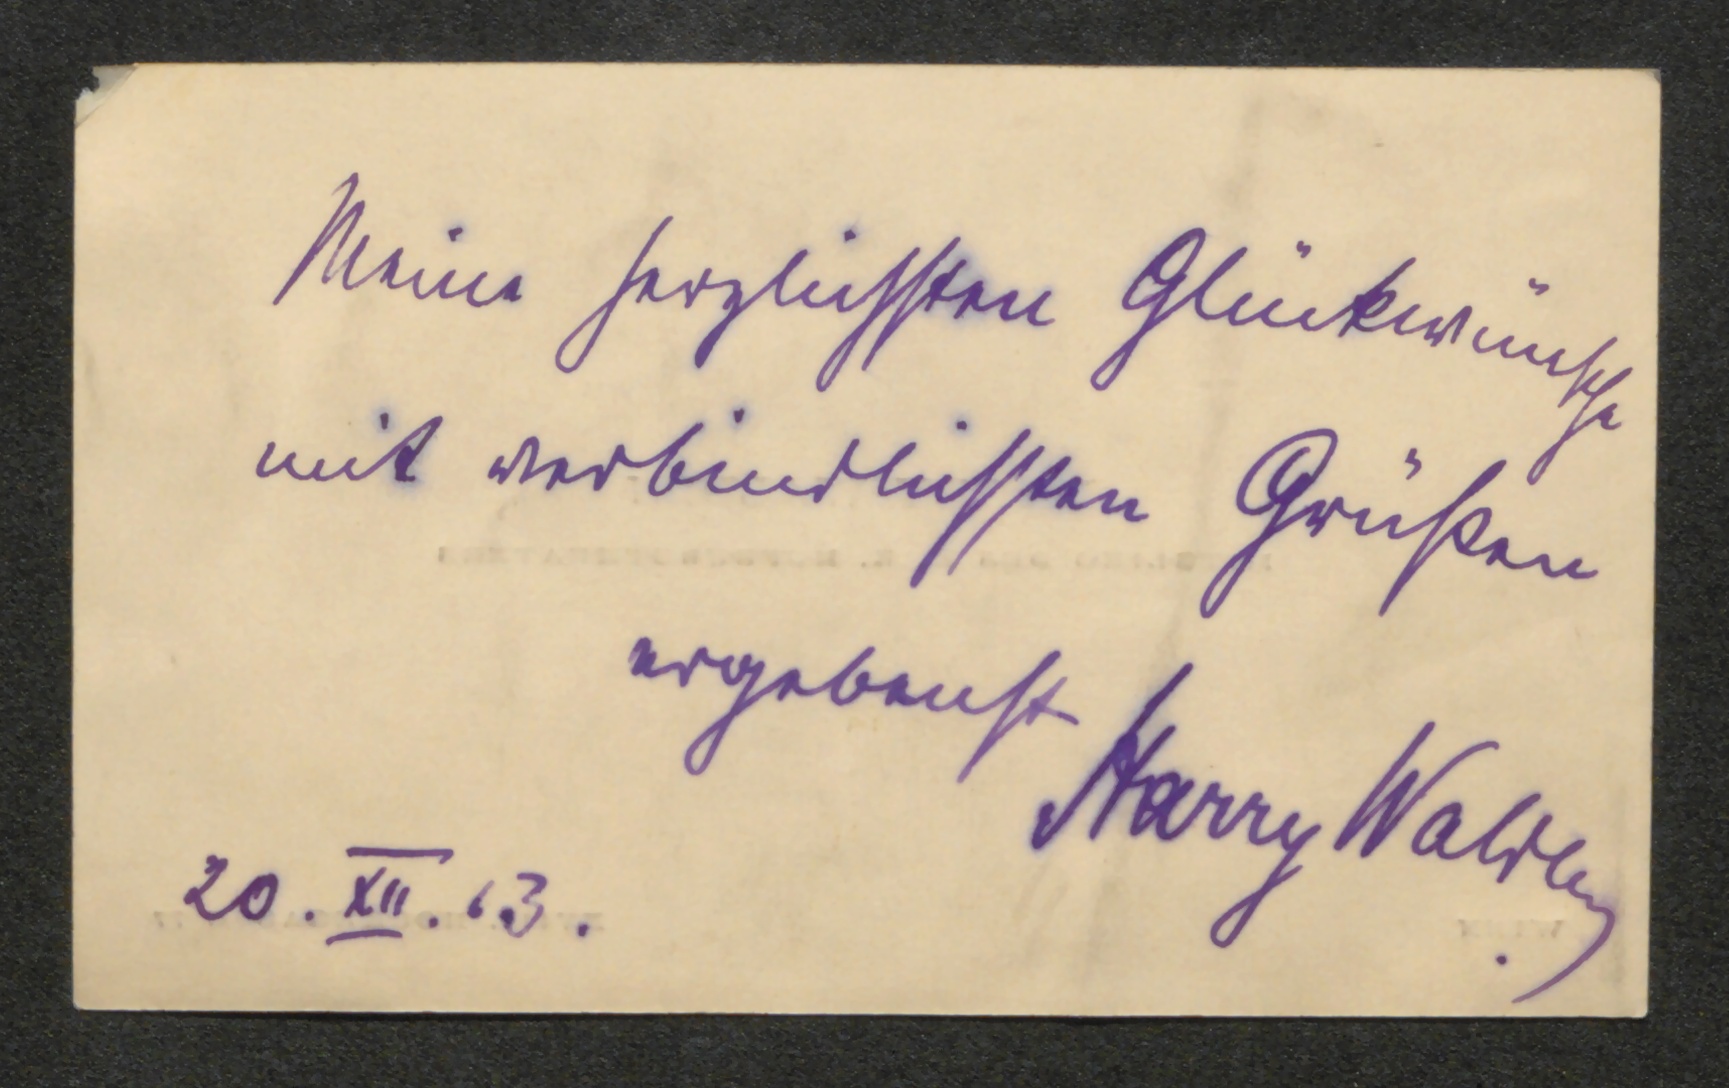 Meine herzlichsten Glückwünsche
mit verbindlichsten Grüßen
ergebenst
Harry Walden
20. XII. 13.